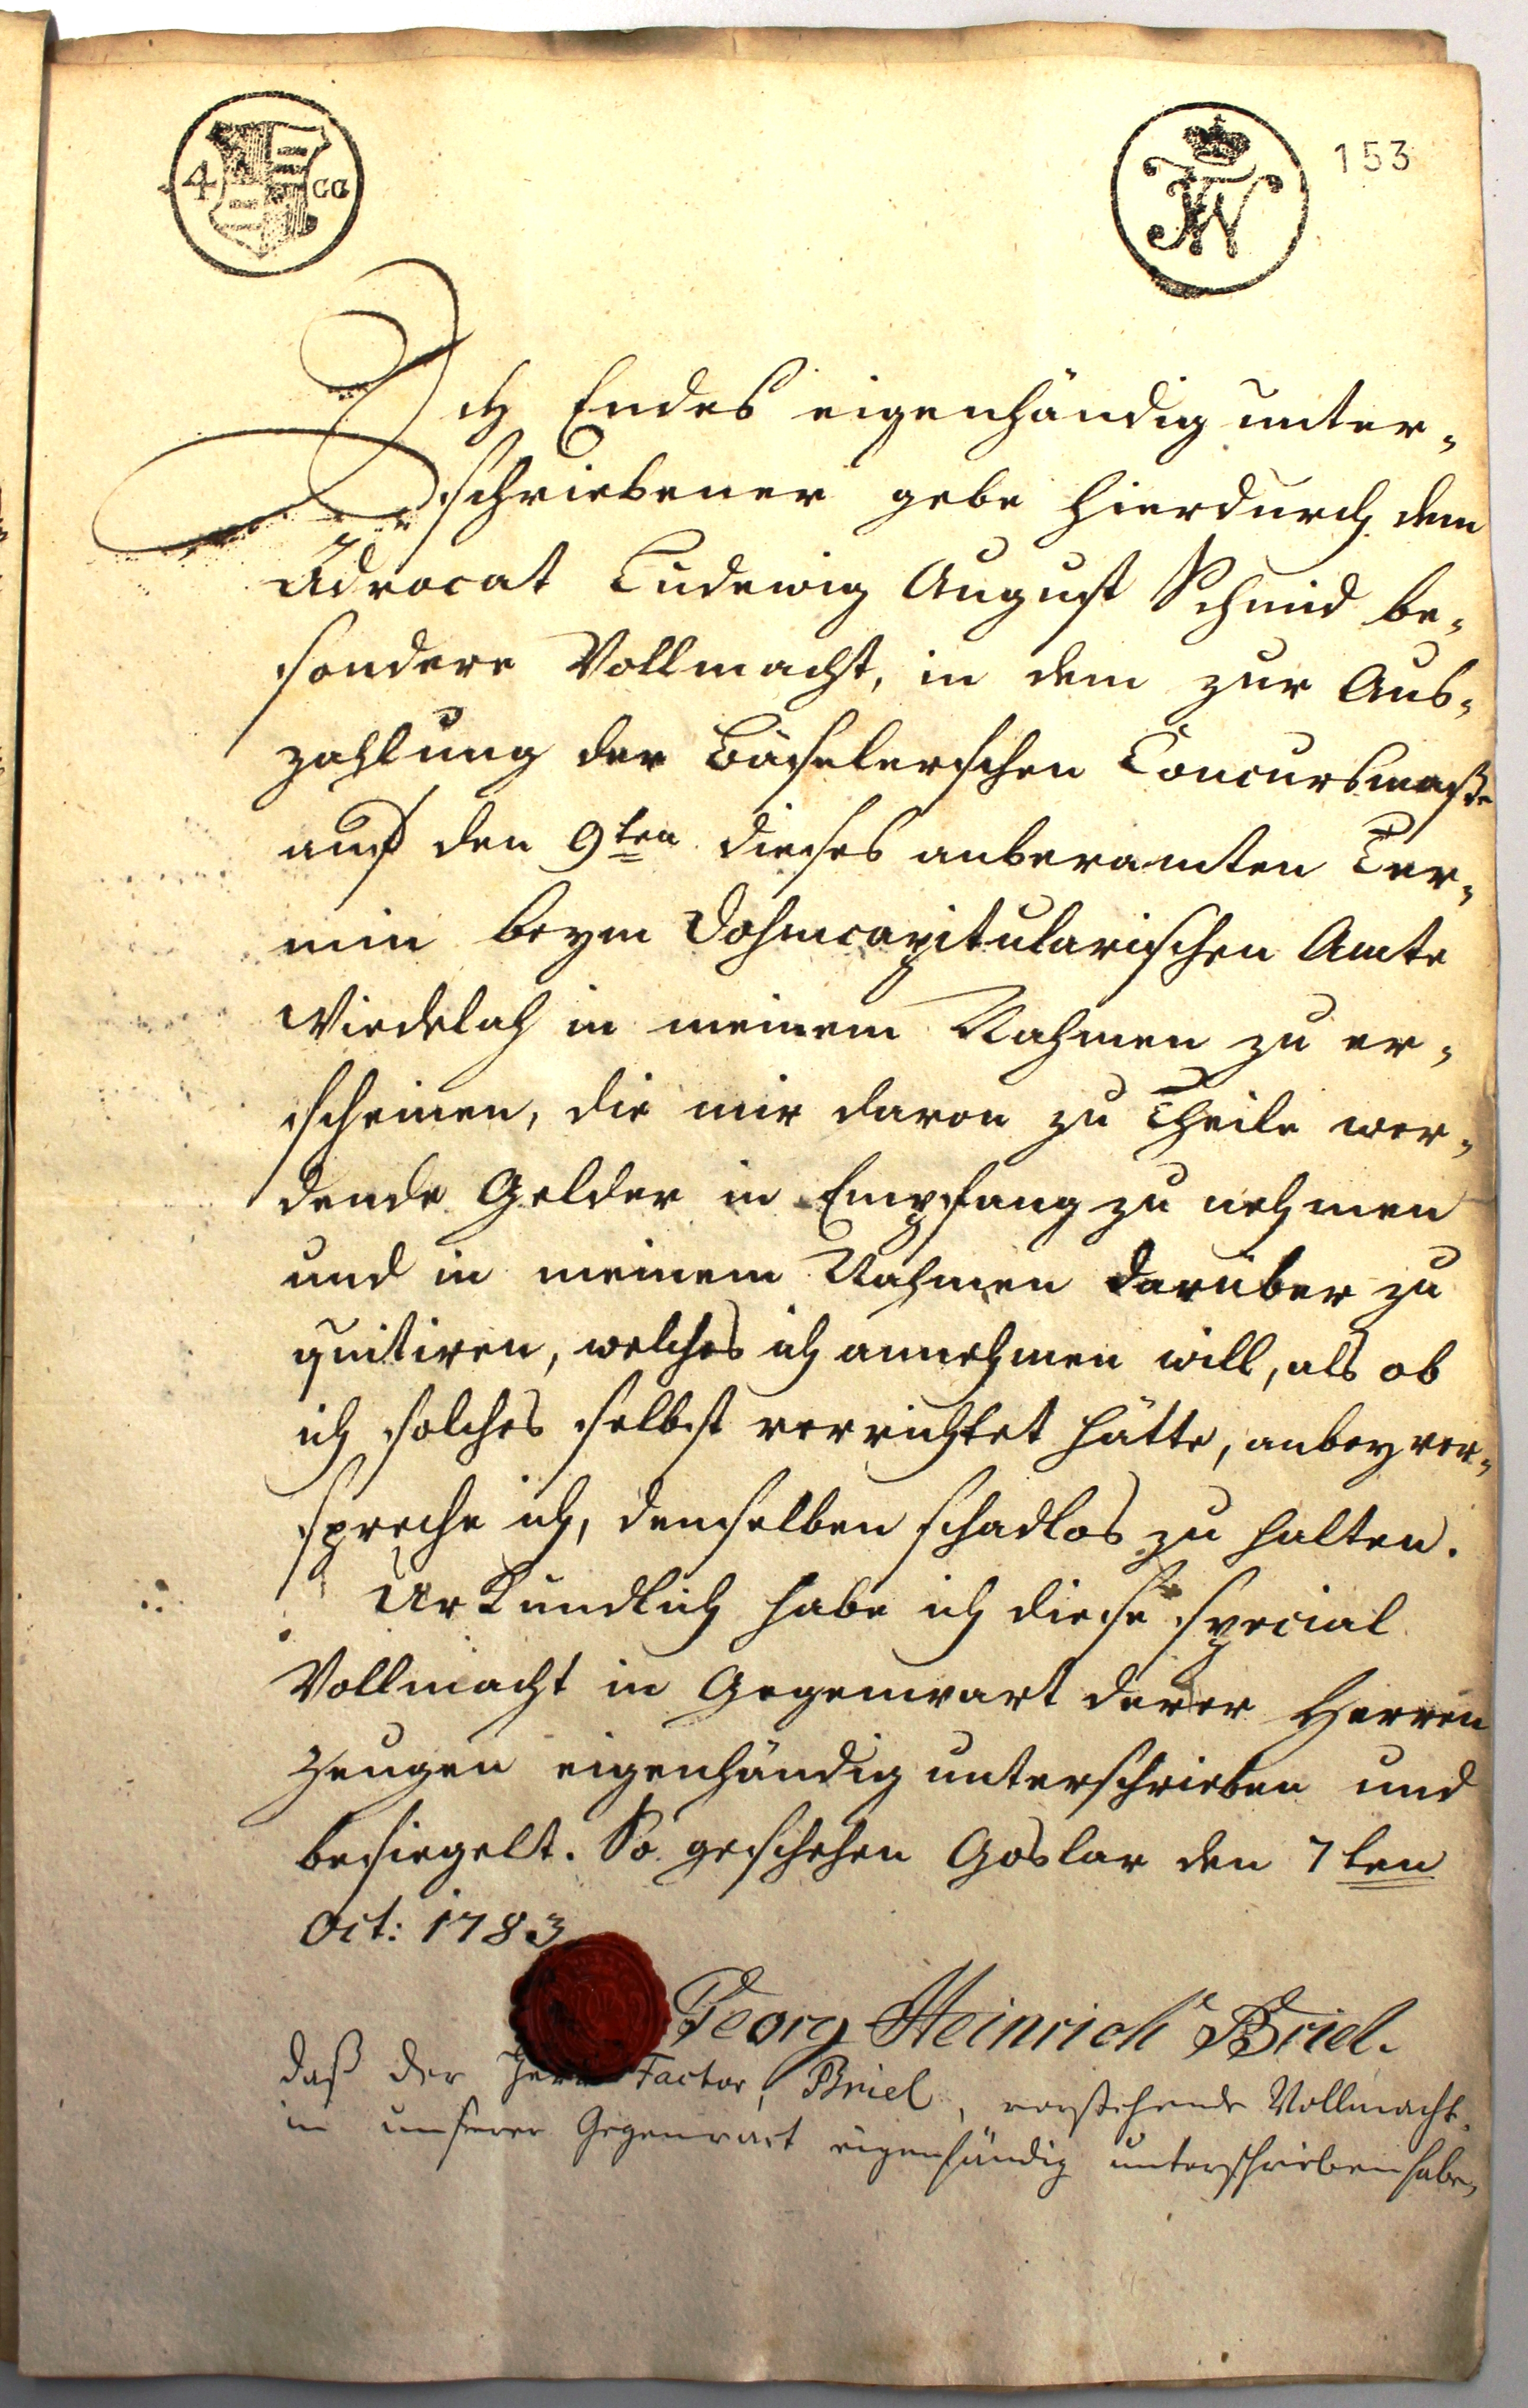 4 GG
FW
153
Ich Endes eigenhändig unter-
schriebener gebe hierdurch dem
Advocat Ludewig August Schmid be-
sondere Vollmacht, in dem zur Aus-
zahlung der Bäselerschen Concursmaße
auf den 9ten dieses anberamten Ter-
min beym Dohmcapitularischen Amte
Wiedelah in meinem Nahmen zu er-
scheinen, die mir davon zu Theile wer-
dende Gelder in Empfang zu nehmen
und in meinem Nahmen darüber zu
quitiren, welches ich annehmen will, als ob
ich solches selbst verrichtet hätte, anbey ver-
spreche ich, demselben schadlos zu halten.
Urkundlich habe ich diese special
Vollmacht in Gegenwart derer Herren
Zeugen eigenhändig unterschrieben und
besiegelt. So geschehen Goslar den 7ten
Oct: 1783
Georg Heinrich Briel.
daß der Herr Factor, Briel, vorstehende Vollmacht
in unserer Gegenwart eigenhändig unterschrieben habe,